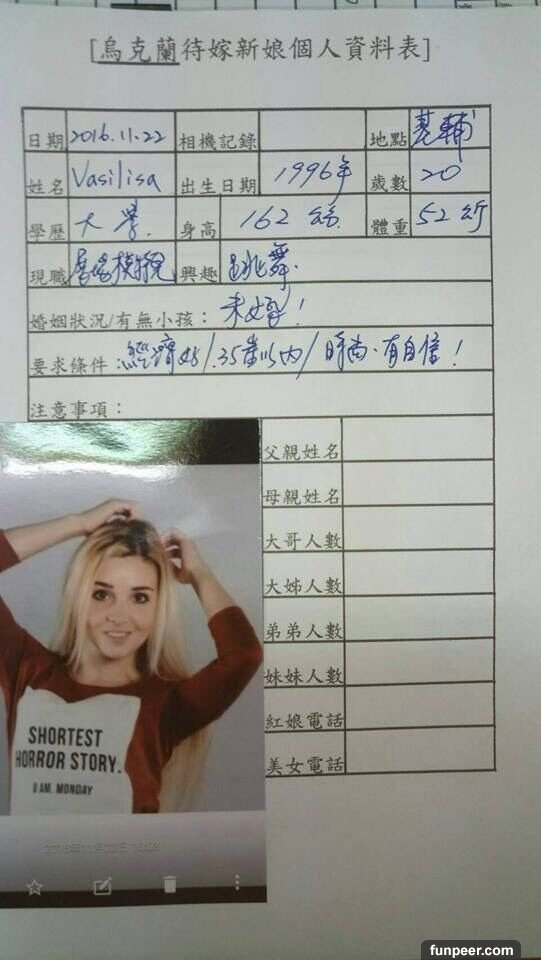 [烏克蘭待嫁新娘個人資料表]
日期 2016.11.22 相機記錄 地點 基輔
姓名 Vasilisa 出生日期 1996年 歲數 20
學歷 大學. 身高 162公分 體重 52公斤
現職 展場模特兒 興趣 跳舞.
婚姻狀況/有無小孩：未婚！
要求條件：經濟好/.35歲以內/時尚.有自信！
注意事項：
父親姓名
母親姓名
大哥人數
大姊人數
弟弟人數
妹妹人數
紅娘電話
美女電話
SHORTEST
HORROR STORY.
8 AM. MONDAY
funpeer.com